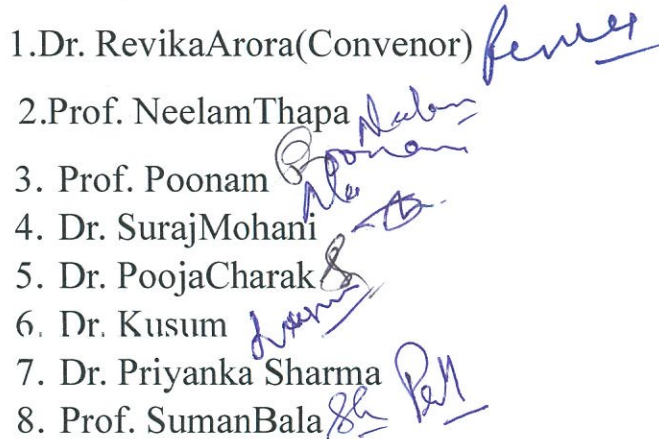 1.Dr. RevikaArora(Convenor)
2.Prof. NeelamThapa Neelam
3. Prof. Poonam Poonam
4. Dr. SurajMohani
5. Dr. PoojaCharak
6. Dr. Kusum
7. Dr. Priyanka Sharma
8. Prof. SumanBala